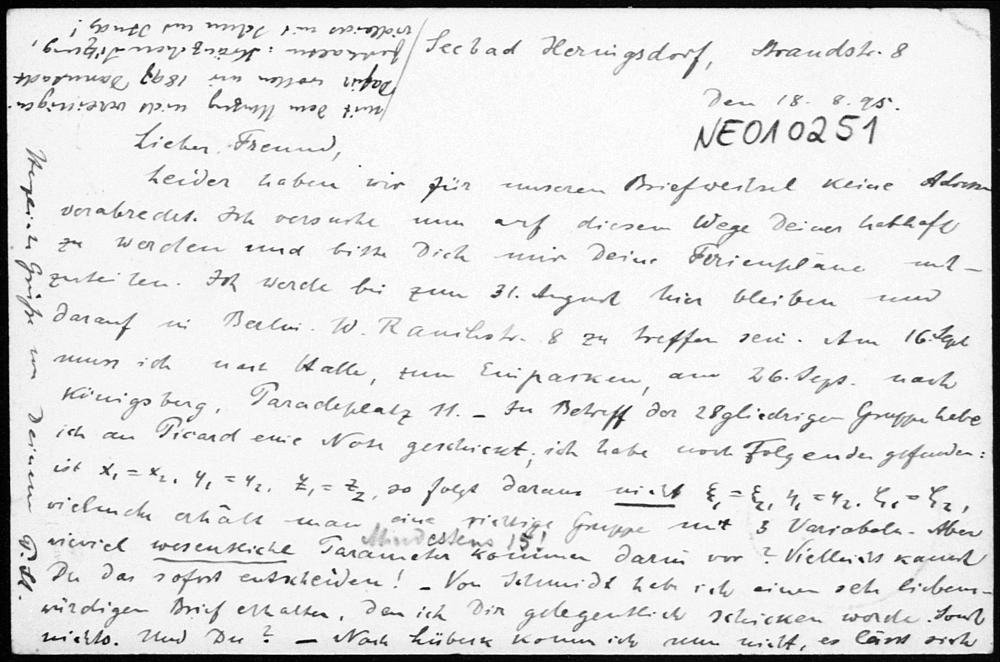 Seebad Heringsdorf, Strandstr. 8
Den 18. 8. 95.
NE010251
Lieber Freund,
Leider haben wir für unseren Briefwechsel keine Adressen
verabredet. Ich versuche nun auf diesem Wege Deiner habhaft
zu werden und bitte Dich mir Deine Ferienpläne mit-
zuteilen. Ich werde bis zum 31. August hier bleiben und
darauf in Berlin. W. Rauchstr. 8 zu treffen sein. Am 16. Sept
muss ich nach Halle, zum Einpacken, am 26. Sept. nach
Königsberg, Paradeplatz 11. – In Betreff der 28gliedrigen Gruppe habe
ich an Picard eine Note geschickt; ich habe noch Folgendes gefunden:
ist x₁ = x₂, y₁ = y₂, z₁ = z₂, so folgt daraus nicht ξ₁ = ξ₂, η₁ = η₂, ζ₁ = ζ₂,
vielmehr erhält man eine richtige Gruppe mit 3 Variabeln. Aber
Mindestens 15!
wieviel wesentliche Parameter kommen darin vor? Vielleicht kannst
Du das sofort entscheiden! – Von Schmidt hab ich einen sehr liebens-
würdigen Brief erhalten, den ich Dir gelegentlich schicken werde. Sonst
nichts. Und Du? – Nach Lübeck komm ich nun nicht, es lässt sich
mit dem Umzug nicht vereinigen.
Dafür wollen wir 1897 Darmstadt
festhalten: Kränzchen Sitzung,
vielleicht mit Schur und Study!
Herzliche Grüße von Deinem F. St.